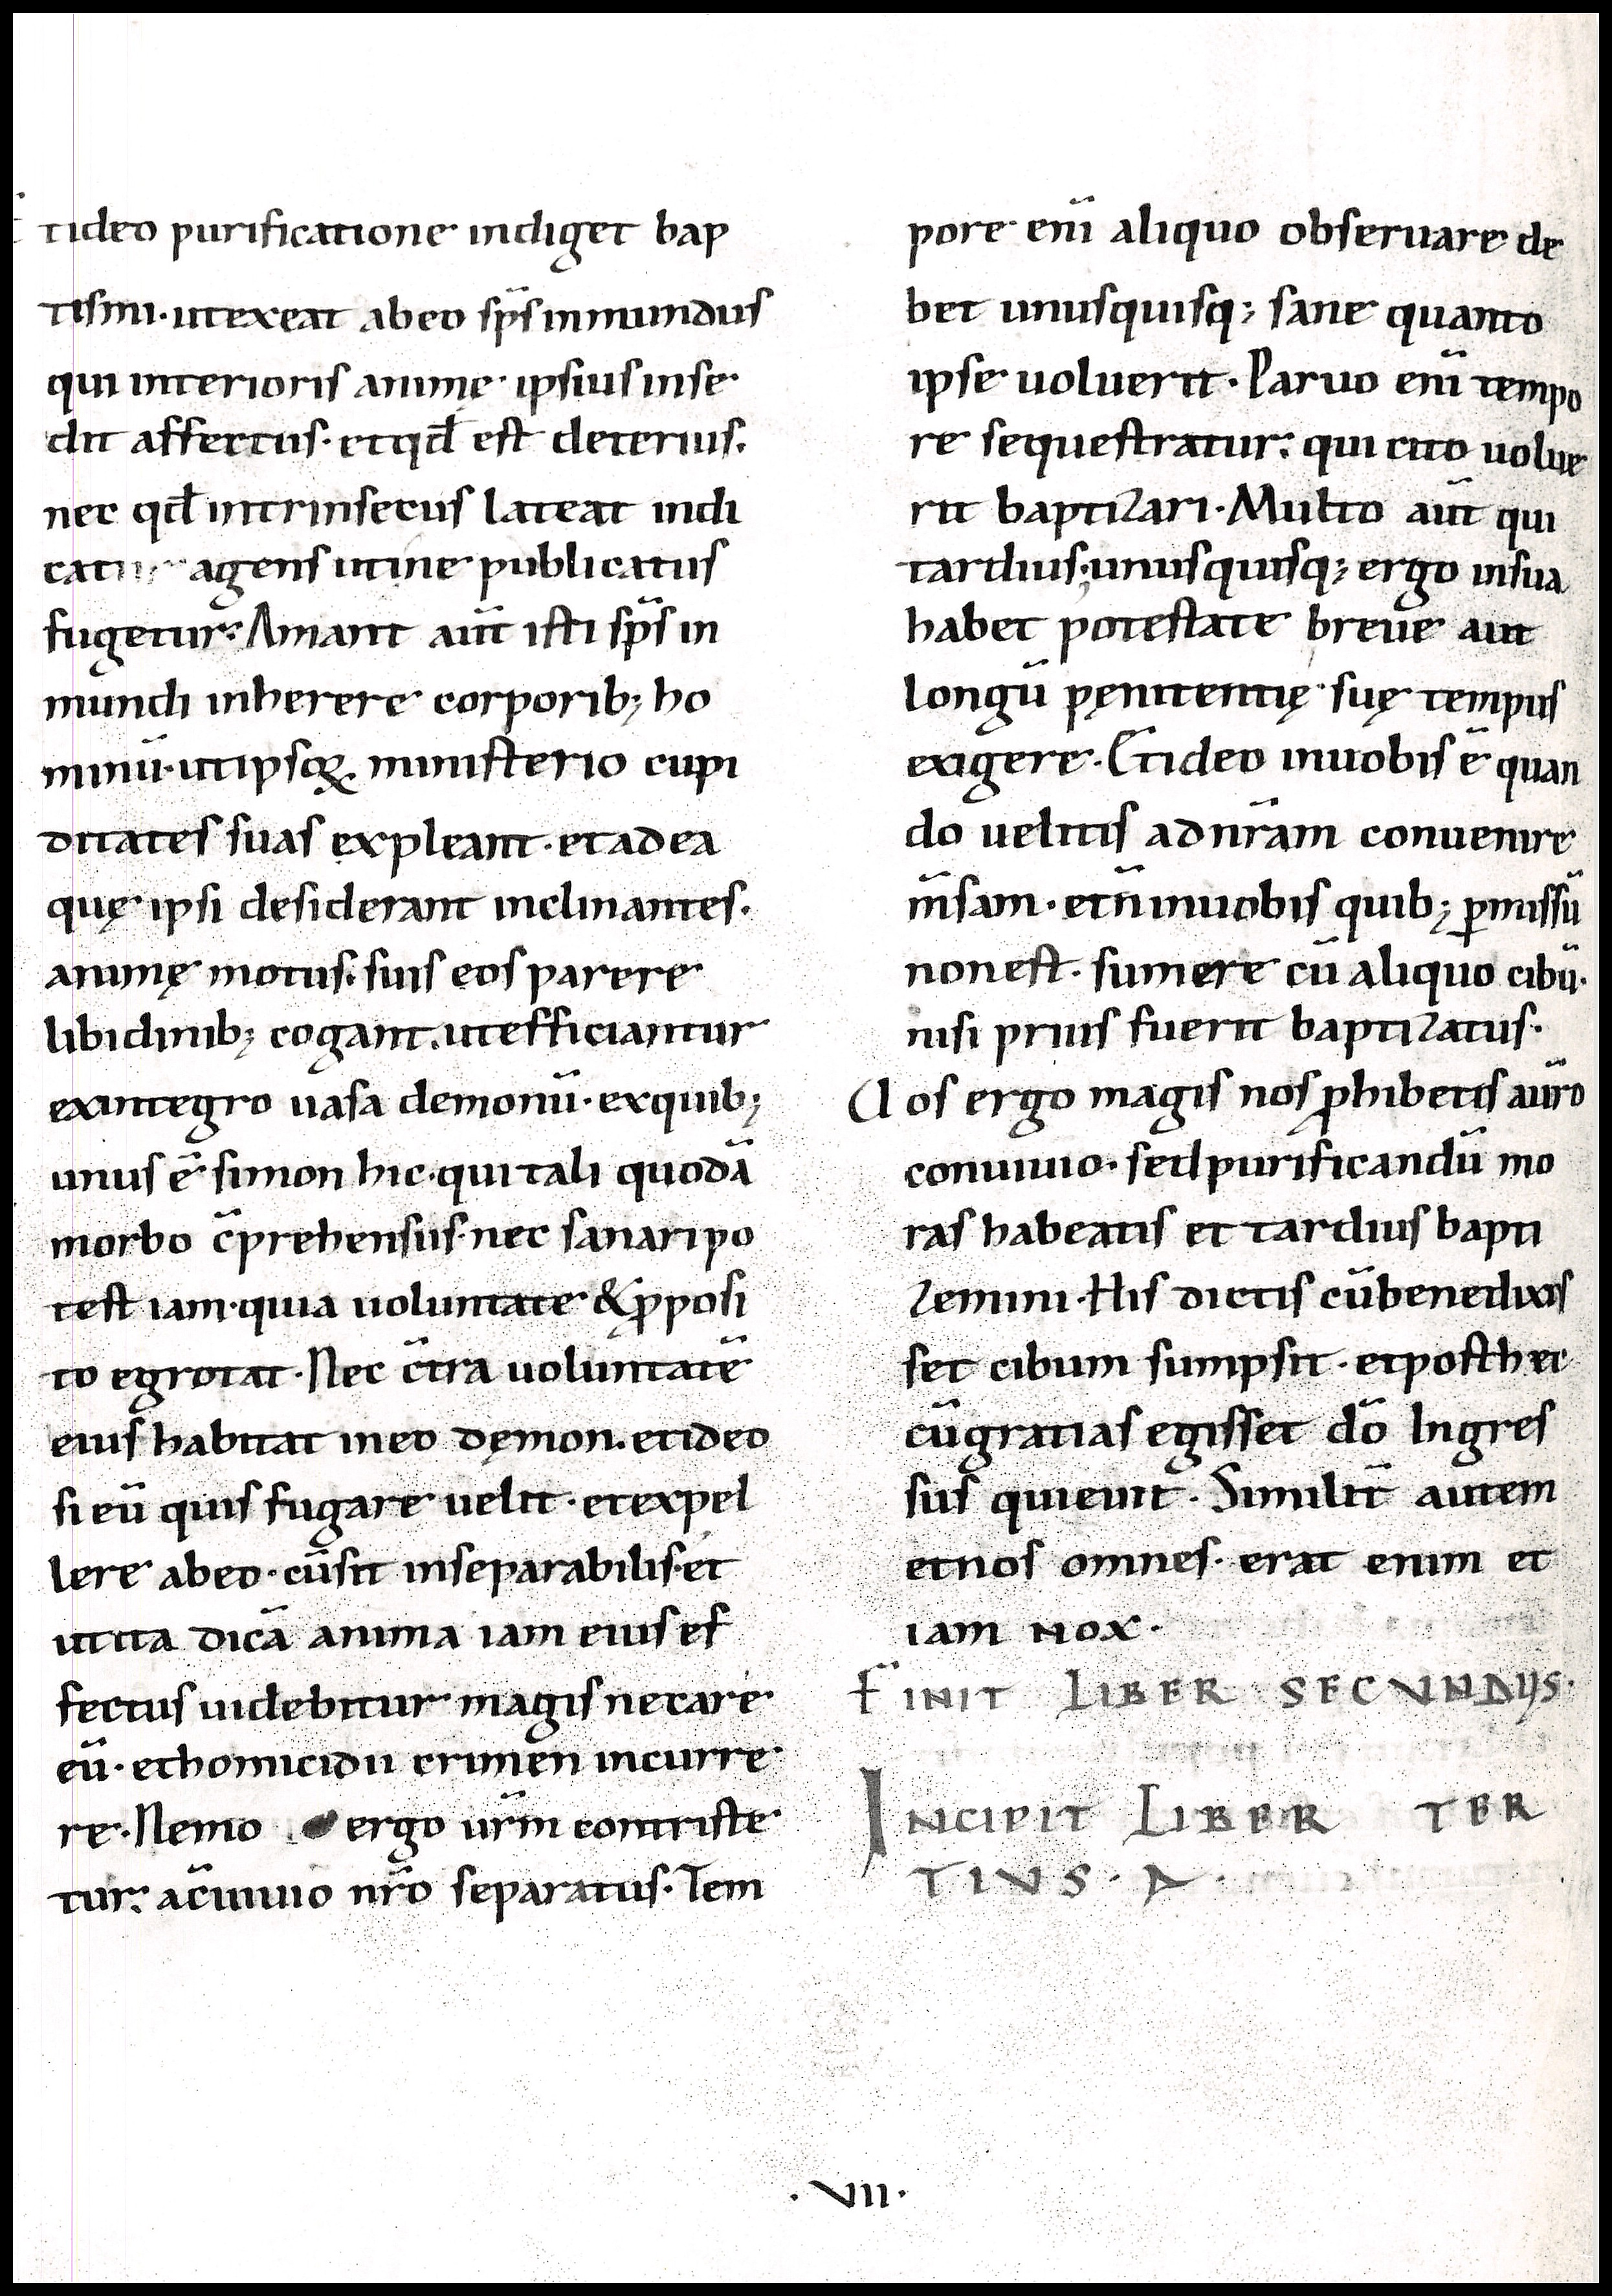 Et ideo purificatione indiget bap
tismi· ut exeat ab eo sp̄s inmundus
qui interioris animę ipsius inse
dit affectus· et qd̄ est deterius·
nec qd̄ intrinsecus lateat indi
catur agens ut ine publicatus
fugetur· Amant aūt isti sp̄s in
mundi inherere corporib; ho
minū· ut ipsoꝝ ministerio cupi
ditates suas expleant· et ad ea
quę ipsi desiderant inclinantes·
animę motus· suis eos parere
libidinib; cogant· ut efficiantur
ex integro uasa demonū· ex quib;
unus ē simon hic· qui tali quodā
morbo c̄prehensus· nec sanari po
test iam· quia uoluntate & ꝓposi
to egrotat· Nec c̄tra uoluntatē
eius habitat in eo dęmon· et ideo
si eū quis fugare uelit· et expel
lere ab eo· cū sit inseparabilis· et
ut ita dicā anima iam eius ef
fectus uidebitur magis necare
eū· et homicidii crimen incurre
re· Nemo ergo ur̄m contriste
tur· a c̄uiuio nr̄o separatus· Tem
pore enī aliquo obseruare de
bet unusquisq; sane quanto
ipse uoluerit· Paruo enī tempo
re sequestratur· qui cito uolue
rit baptizari· Multo aūt qui
tardius· unusquisq; ergo in sua
habet potestate breue aut
longū pęnitentię suę tempus
exigere· Et ideo in uobis ē quan
do uelitis ad nr̄am conuenire
m̄sam· et n̄ in uobis quib; ꝑmissū
non est· sumere cū aliquo cibū·
nisi prius fuerit baptizatus·
Uos ergo magis nos ꝓhibetis aūro
conuiuio· sed purificandū mo
ras habeatis et tardius bapti
zemini· His dictis cū benedixis
set cibum sumpsit· et post hec
cū gratias egisset dō Ingres
sus quieuit· Similit̄ autem
et nos omnes· erat enim et
iam nox·
FINIT LIBER SECUNDUS·
INCIPIT LIBER TER
TIUS· A·
·VII·